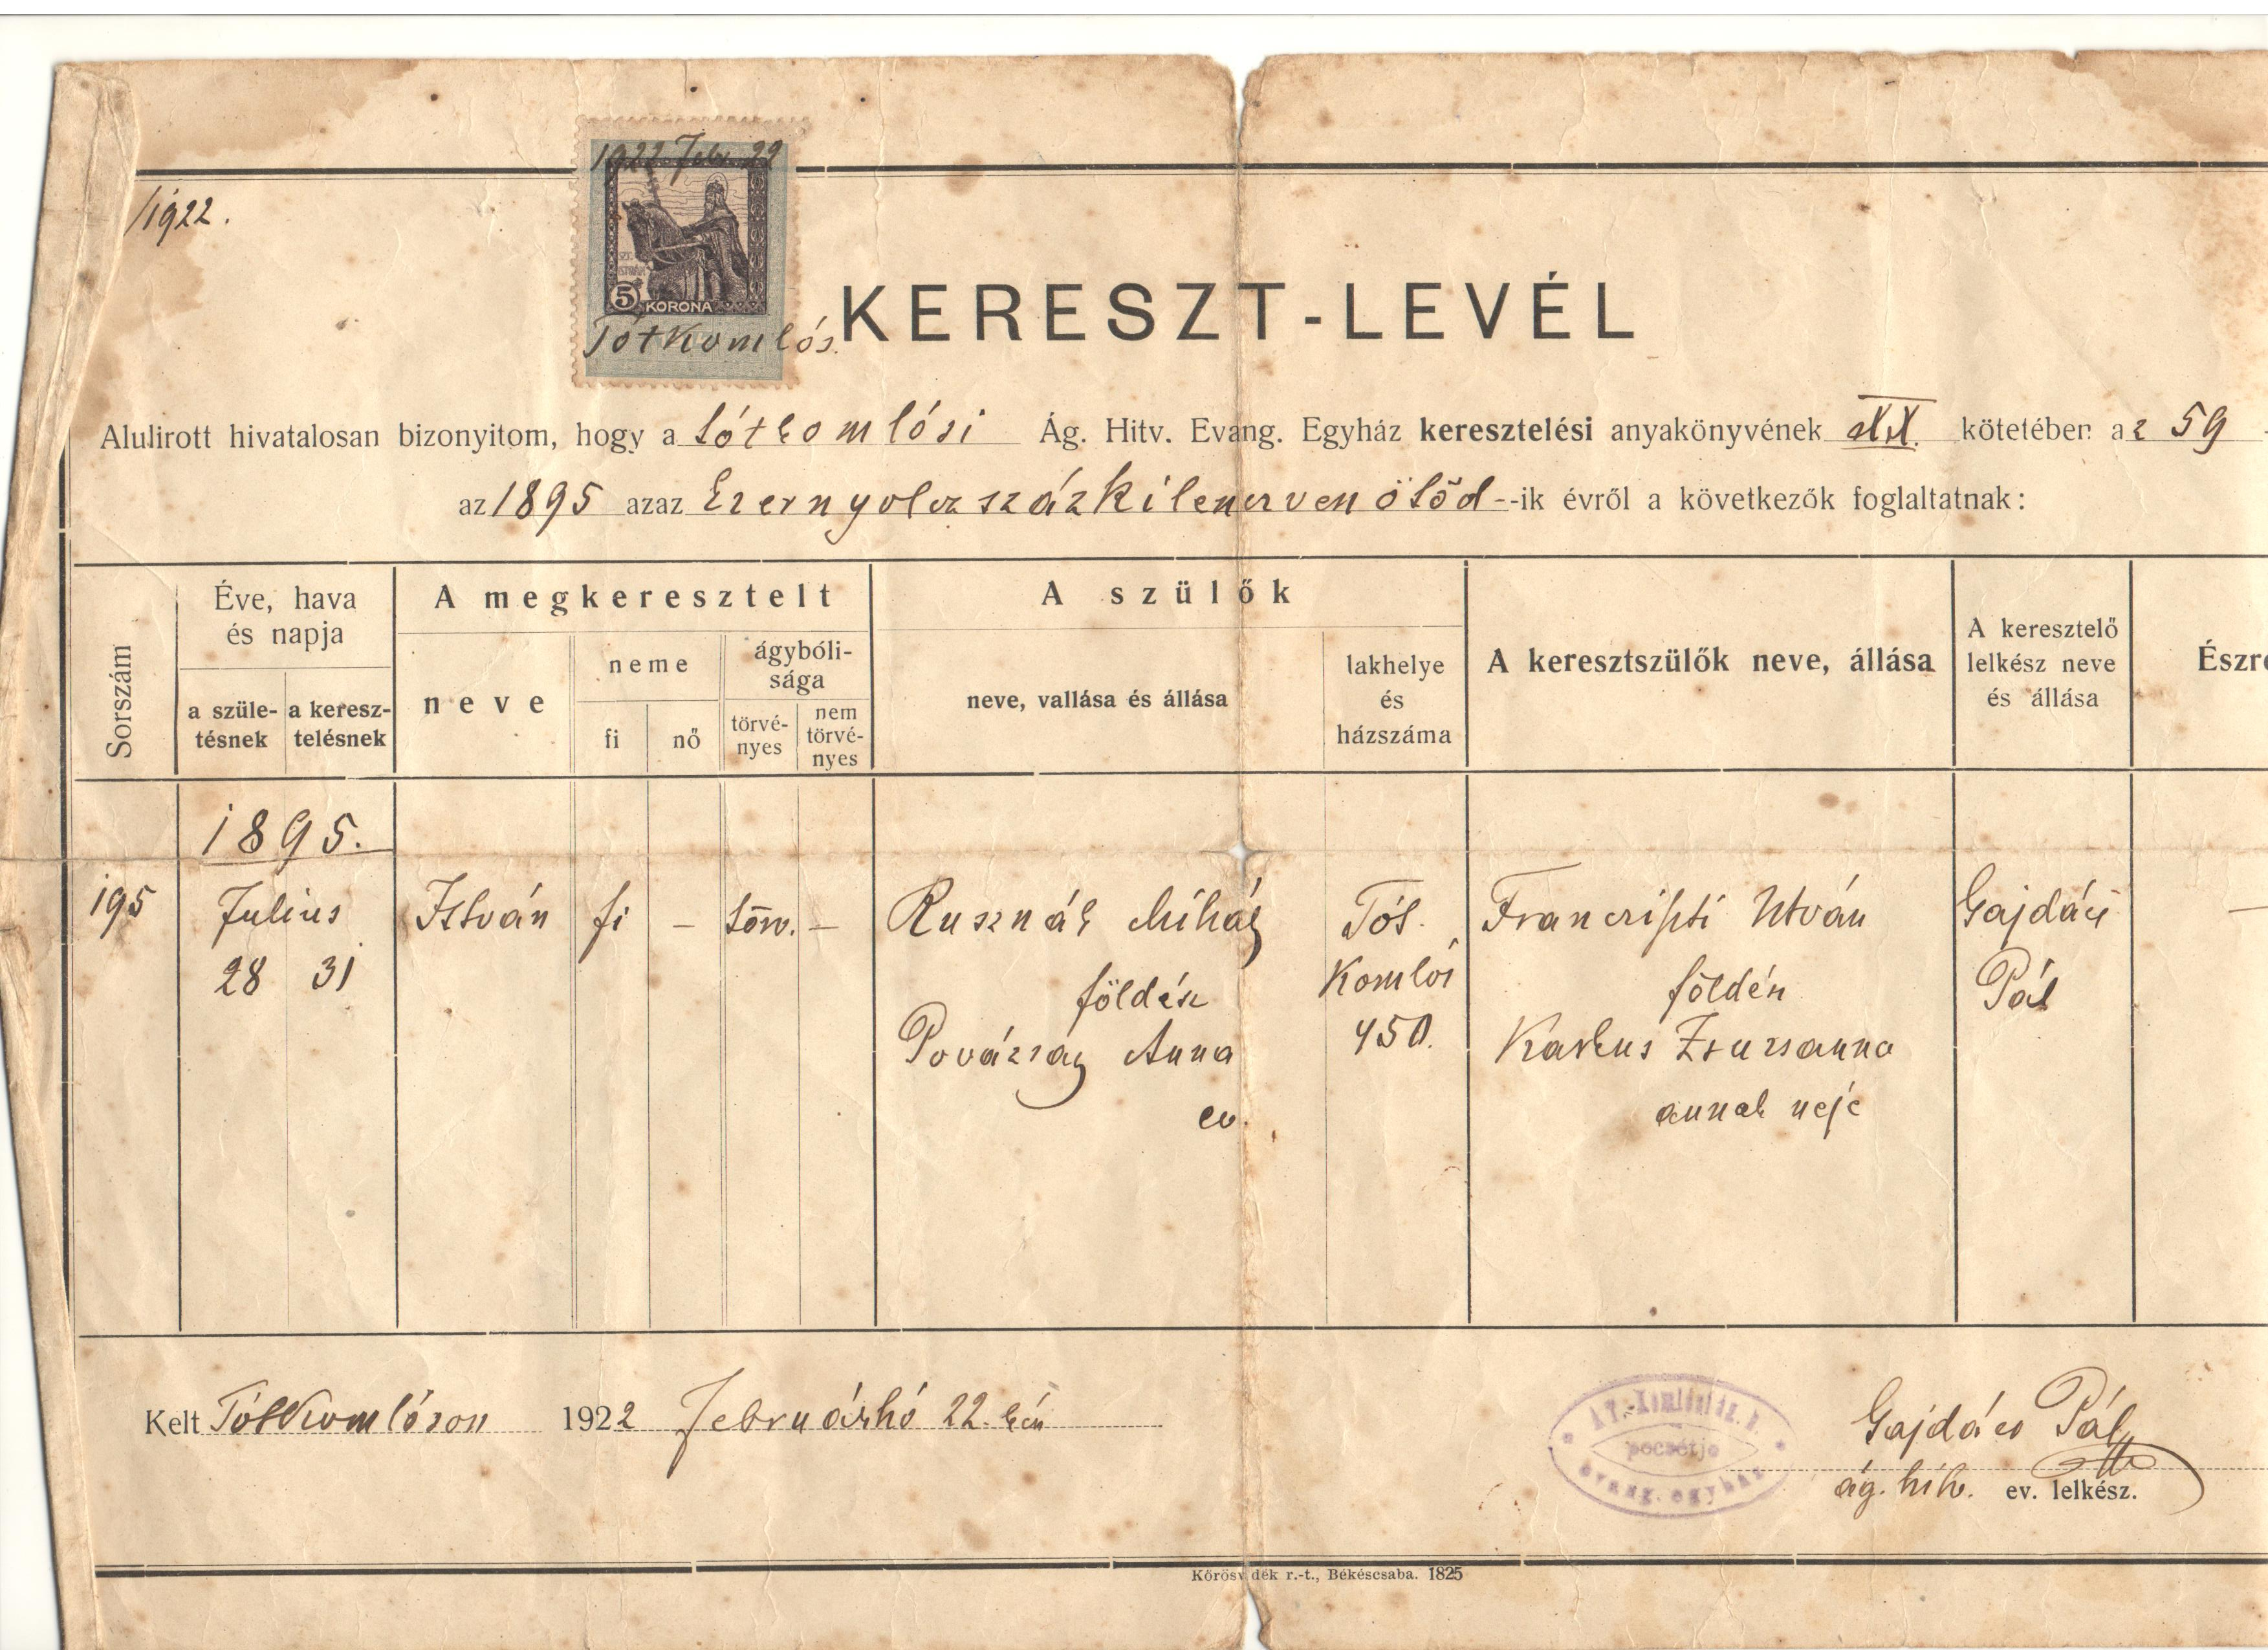 1922 Febr 22
/1922.
SZT. ISTVÁN
5 KORONA
Tótkomlós.
KERESZT-LEVÉL
Alulirott hivatalosan bizonyitom, hogy a tótkomlósi Ág. Hitv. Evang. Egyház keresztelési anyakönyvének XX. kötetében az 59
az 1895 azaz Ezernyolczszázkilenczvenötöd--ik évről a következők foglaltatnak:
Sorszám
Éve, hava és napja
a szüle-tésnek
a keresz-telésnek
A megkeresztelt
neve
neme
fi
nő
ágybóli-sága
törvé-nyes
nem törvé-nyes
A szülők
neve, vallása és állása
lakhelye és házszáma
A keresztszülők neve, állása
A keresztelő lelkész neve és állása
Észre
1895.
195
Julius
28 31
István
fi
-
törv.
-
Rusznák Mihály
földész
Povázsay Anna
ev.
Tót
Komlós
450.
Francziszti István
földész
Karkus Zsuzsanna
annak neje
Gajdács
Pál
-
Kelt Tótkomlóson 1922 Februárhó 22-kén
A T.-Komlósi ág. h.
pecsétje
evang. egyház
Gajdács Pál
ág. hitv. ev. lelkész.
Kőrösvidék r.-t., Békéscsaba. 1825